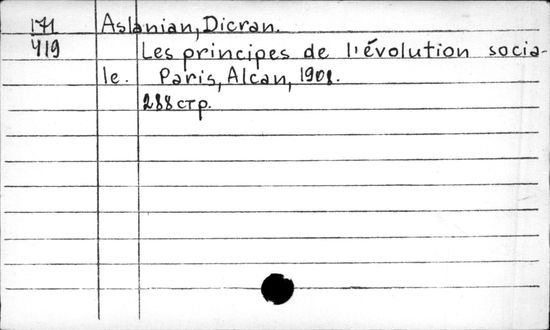 171 Aslanian, Dicran.
419 Les principes de l'évolution socia-
le. Paris, Alcan, 1908.
288 стр.